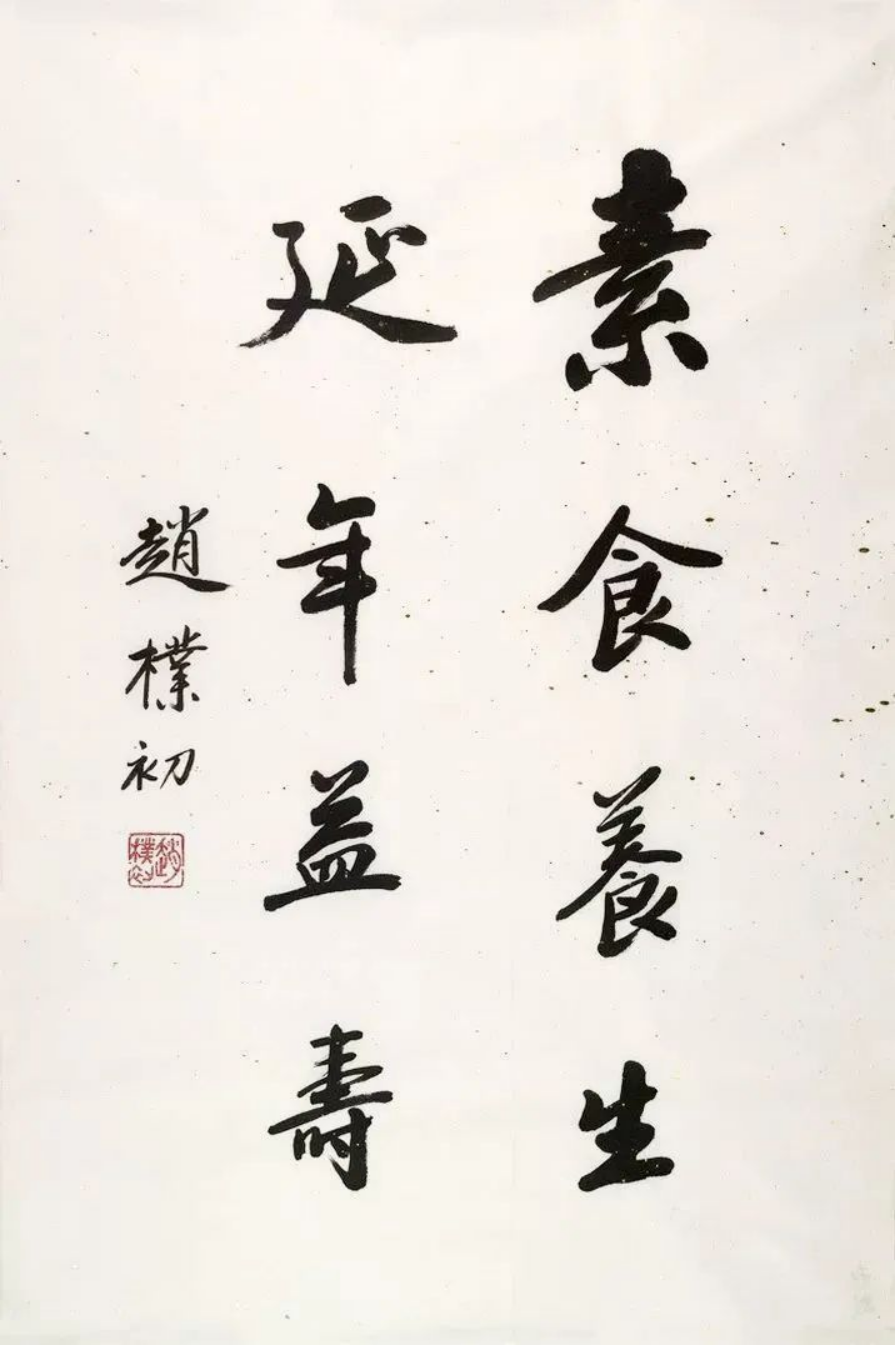 素食養生
延年益壽
趙樸初
趙樸初